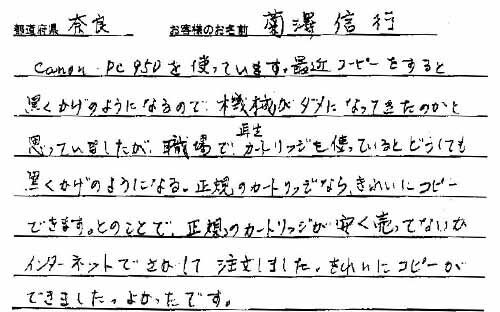 都道府県 奈良 お客様のお名前 蘭澤 信行
Canon PC950を使っています。最近コーピーをすると
黒くかげのようになるので、機械がダメになってきたのかと
思っていましたが、職場で、再生カートリッジを使っているとどうしても
黒くかげのようになる。正規のカートリッジなら、きれいにコピー
できます。とのことで、正規のカートリッジが安く売ってないか
インターネットでさがして注文しました。きれいにコピーが
できました。よかったです。